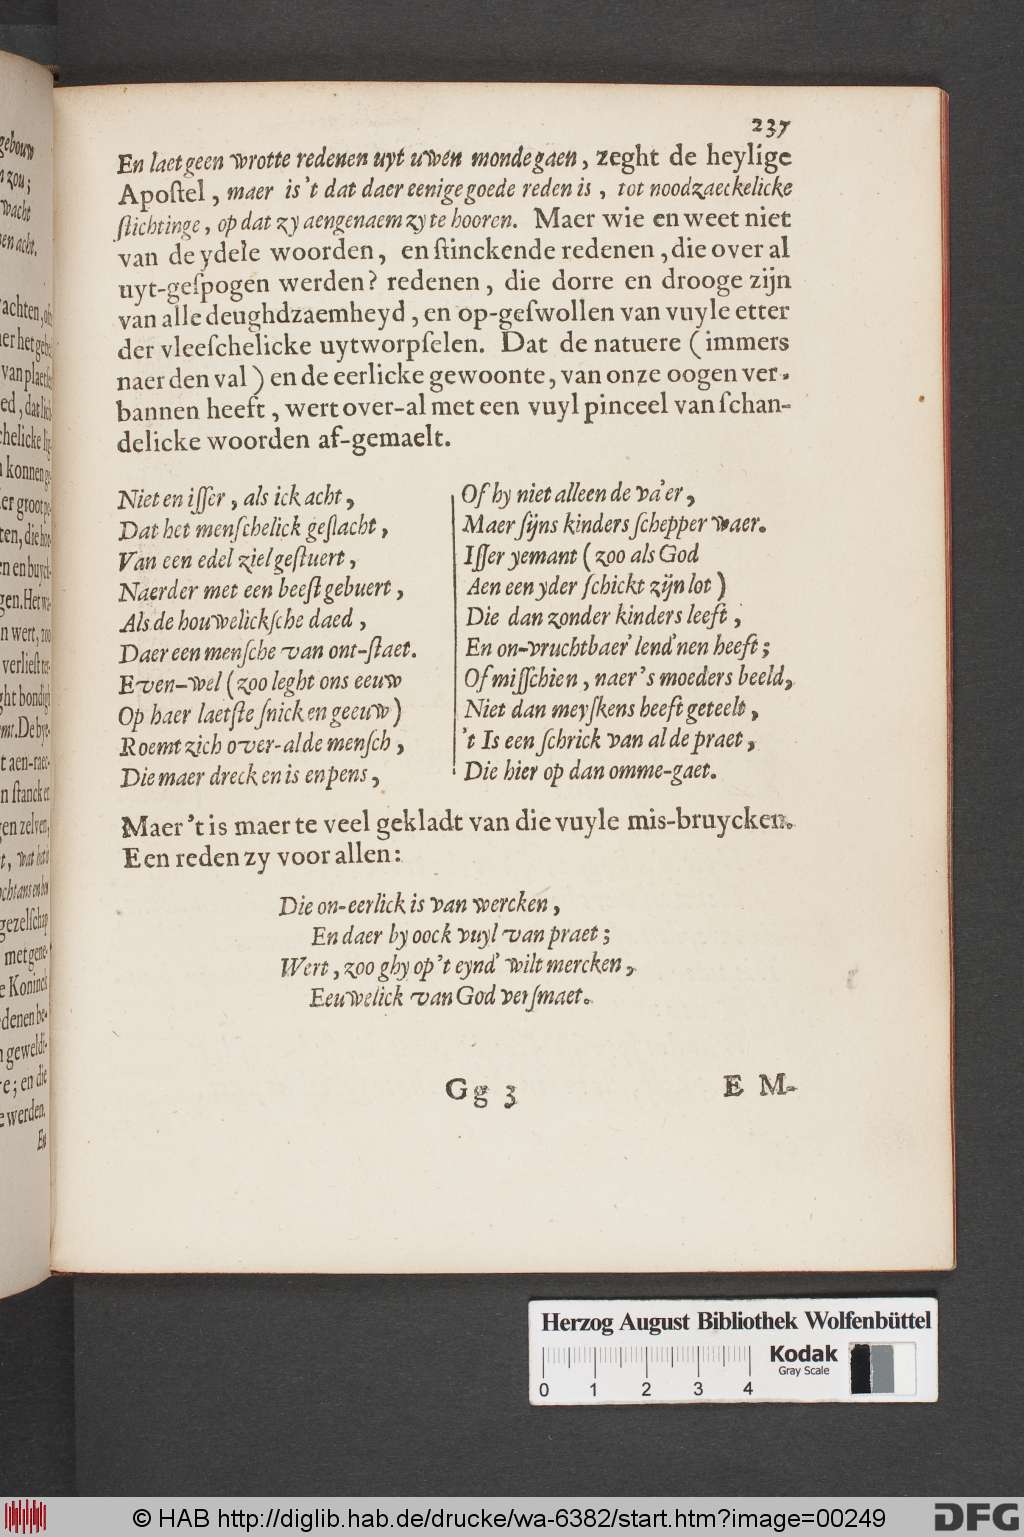 237
En laet geen wrotte redenen uyt uwen monde gaen, zeght de heylige
Apoſtel, maer is 't dat daer eenige goede reden is, tot noodzaeckelicke
ſtichtinge, op dat zy aengenaem zy te hooren. Maer wie en weet niet
van de ydele woorden, en ſtinckende redenen, die over al
uyt-geſpogen werden? redenen, die dorre en drooge zijn
van alle deughdzaemheyd, en op-geſwollen van vuyle etter
der vleeſchelicke uytworpſelen. Dat de natuere (immers
naer den val) en de eerlicke gewoonte, van onze oogen ver-
bannen heeft, wert over-al met een vuyl pinceel van ſchan-
delicke woorden af-gemaelt.
Niet en iſſer, als ick acht,
Dat het menſchelick geſlacht,
Van een edel ziel geſtuert,
Naerder met een beeſt gebuert,
Als de houwelickſche daed,
Daer een menſche van ont-ſtaet.
Even-wel (zoo leght ons eeuw
Op haer laetſte ſnick en geeuw)
Roemt zich over-al de menſch,
Die maer dreck en is en pens,
Of hy niet alleen de va'er,
Maer ſijns kinders ſchepper waer.
Iſſer yemant (zoo als God
Aen een yder ſchickt zijn lot)
Die dan zonder kinders leeft,
En on-vruchtbaer' lend'nen heeft;
Of miſſchien, naer 's moeders beeld,
Niet dan meyſkens heeft geteelt,
't Is een ſchrick van al de praet,
Die hier op dan omme-gaet.
Maer 't is maer te veel gekladt van die vuyle mis-bruycken.
Een reden zy voor allen:
Die on-eerlick is van wercken,
En daer by oock vuyl van praet;
Wert, zoo ghy op 't eynd' wilt mercken,
Eeuwelick van God verſmaet.
Gg 3 E M-
Herzog August Bibliothek Wolfenbüttel
Kodak
Gray Scale
0 1 2 3 4
© HAB http://diglib.hab.de/drucke/wa-6382/start.htm?image=00249
DFG